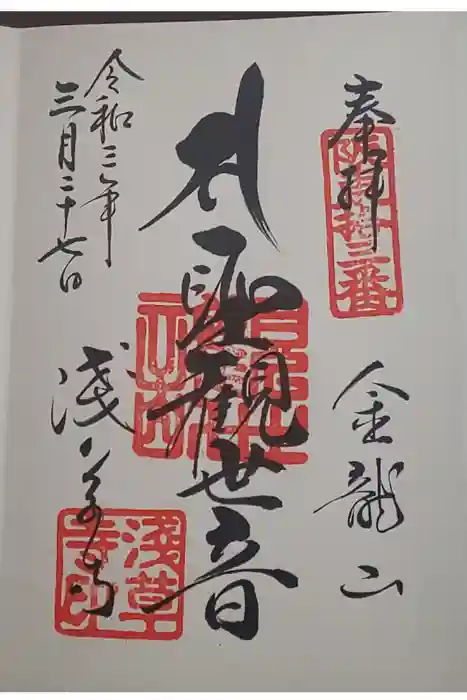 奉拝
阪東十三番
金龍山
聖観世音
浅草寺
淺草寺印
令和三年
三月二十七日